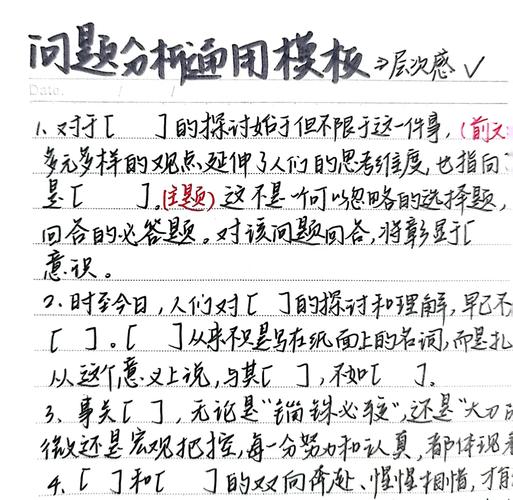 问题分析通用模板→层次感✓
Date. / /
1、对于[ ]的探讨始于但不限于这一件事,(前文
多元多样的观点延伸了人们的思考维度,也指向
是[ ]。(主题)这不是一个可以忽略的选择题,
回答的必答题。对该问题回答,将彰显于[
意识。
2、时至今日,人们对[ ]的探讨和理解,早已不
[ ]。[ ]从来不只是写在纸面上的名词,而是扎
从这个意义上说,与其[ ],不如[ ]。
3、事关[ ],无论是“锱铢必较”,还是“大刀
微还是宏观把控,每一分努力和认真,都体现
4、[ ]和[ ]的双向奔赴、惺惺相惜,才